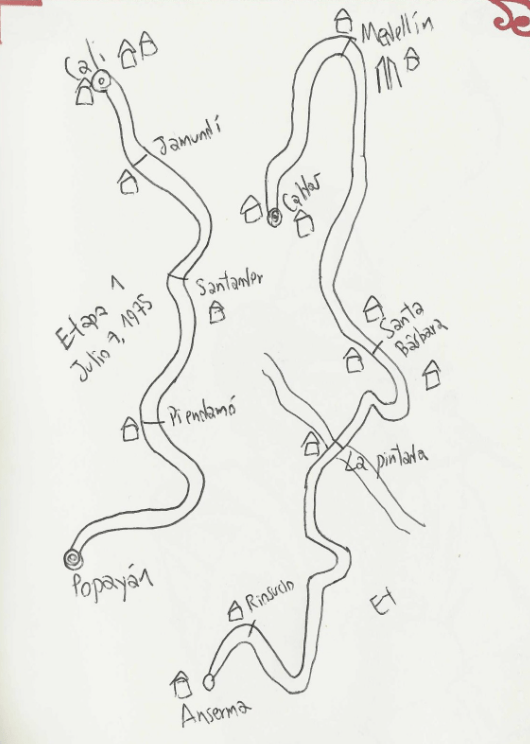 Cali
Jamundí
Santander
Etapa 1
Julio 9, 1975
Piendamó
Popayán
Medellín
Caldas
Santa
Bárbara
La pintada
Et
Riosucio
Anserma